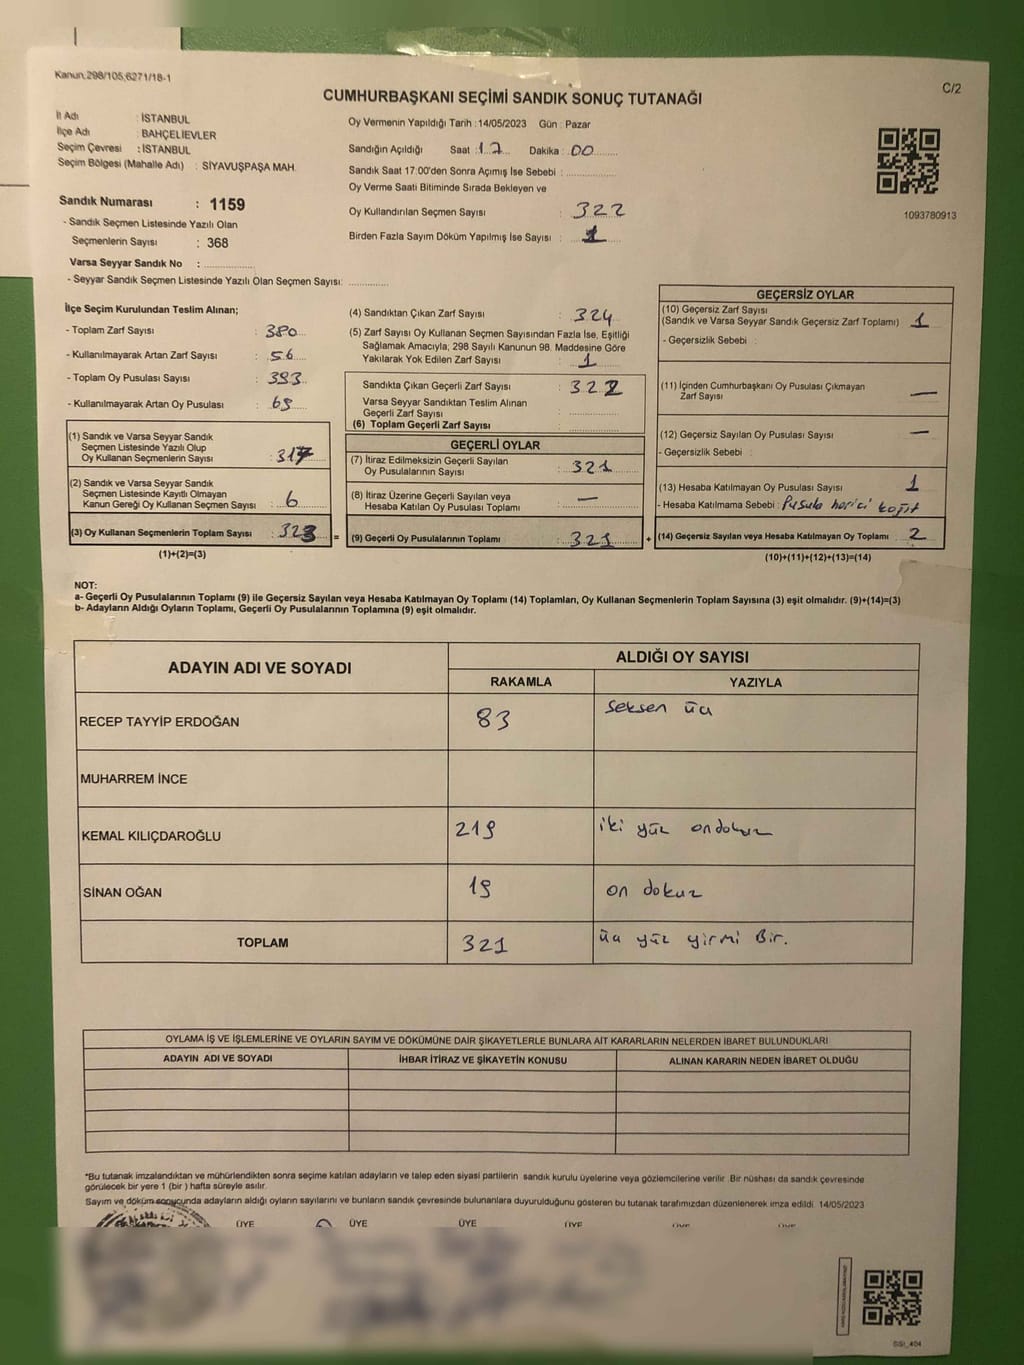 Kanun;298/105;6271/18-1
C/2
CUMHURBAŞKANI SEÇİMİ SANDIK SONUÇ TUTANAĞI
İl Adı : İSTANBUL
İlçe Adı : BAHÇELİEVLER
Seçim Çevresi : İSTANBUL
Seçim Bölgesi (Mahalle Adı) : SİYAVUŞPAŞA MAH.
Sandık Numarası : 1159
- Sandık Seçmen Listesinde Yazılı Olan
Seçmenlerin Sayısı : 368
Varsa Seyyar Sandık No :
- Seyyar Sandık Seçmen Listesinde Yazılı Olan Seçmen Sayısı:
Oy Vermenin Yapıldığı Tarih : 14/05/2023 Gün : Pazar
Sandığın Açıldığı Saat : 17 Dakika : 00
Sandık Saat 17:00'den Sonra Açımış İse Sebebi :
Oy Verme Saati Bitiminde Sırada Bekleyen ve
Oy Kullandırılan Seçmen Sayısı : 322
Birden Fazla Sayım Döküm Yapılmış İse Sayısı : 1
1093780913
İlçe Seçim Kurulundan Teslim Alınan;
- Toplam Zarf Sayısı : 380
- Kullanılmayarak Artan Zarf Sayısı : 56
- Toplam Oy Pusulası Sayısı : 393
- Kullanılmayarak Artan Oy Pusulası : 69
(1) Sandık ve Varsa Seyyar Sandık
Seçmen Listesinde Yazılı Olup
Oy Kullanan Seçmenlerin Sayısı : 317
(2) Sandık ve Varsa Seyyar Sandık
Seçmen Listesinde Kayıtlı Olmayan
Kanun Gereği Oy Kullanan Seçmen Sayısı : 6
(3) Oy Kullanan Seçmenlerin Toplam Sayısı : 323
(1)+(2)=(3)
(4) Sandıktan Çıkan Zarf Sayısı : 324
(5) Zarf Sayısı Oy Kullanan Seçmen Sayısından Fazla İse, Eşitliği
Sağlamak Amacıyla, 298 Sayılı Kanunun 98. Maddesine Göre
Yakılarak Yok Edilen Zarf Sayısı : 1
Sandıkta Çıkan Geçerli Zarf Sayısı : 322
Varsa Seyyar Sandıktan Teslim Alınan
Geçerli Zarf Sayısı :
(6) Toplam Geçerli Zarf Sayısı :
GEÇERLİ OYLAR
(7) İtiraz Edilmeksizin Geçerli Sayılan
Oy Pusulalarının Sayısı : 321
(8) İtiraz Üzerine Geçerli Sayılan veya
Hesaba Katılan Oy Pusulası Toplamı : —
= (9) Geçerli Oy Pusulalarının Toplamı : 321
GEÇERSİZ OYLAR
(10) Geçersiz Zarf Sayısı
(Sandık ve Varsa Seyyar Sandık Geçersiz Zarf Toplamı) : 1
- Geçersizlik Sebebi :
(11) İçinden Cumhurbaşkanı Oy Pusulası Çıkmayan
Zarf Sayısı : —
(12) Geçersiz Sayılan Oy Pusulası Sayısı : —
- Geçersizlik Sebebi :
(13) Hesaba Katılmayan Oy Pusulası Sayısı : 1
- Hesaba Katılmama Sebebi : Pusula harici kağıt
+ (14) Geçersiz Sayılan veya Hesaba Katılmayan Oy Toplamı : 2
(10)+(11)+(12)+(13)=(14)
NOT:
a- Geçerli Oy Pusulalarının Toplamı (9) ile Geçersiz Sayılan veya Hesaba Katılmayan Oy Toplamı (14) Toplamları, Oy Kullanan Seçmenlerin Toplam Sayısına (3) eşit olmalıdır. (9)+(14)=(3)
b- Adayların Aldığı Oyların Toplamı, Geçerli Oy Pusulalarının Toplamına (9) eşit olmalıdır.
ADAYIN ADI VE SOYADI ALDIĞI OY SAYISI
RAKAMLA YAZIYLA
RECEP TAYYİP ERDOĞAN 83 Seksen üç
MUHARREM İNCE
KEMAL KILIÇDAROĞLU 219 iki yüz ondokuz
SİNAN OĞAN 19 on dokuz
TOPLAM 321 üç yüz yirmi Bir.
OYLAMA İŞ VE İŞLEMLERİNE VE OYLARIN SAYIM VE DÖKÜMÜNE DAİR ŞİKAYETLERLE BUNLARA AİT KARARLARIN NELERDEN İBARET BULUNDUKLARI
ADAYIN ADI VE SOYADI İHBAR İTİRAZ VE ŞİKAYETİN KONUSU ALINAN KARARIN NEDEN İBARET OLDUĞU
*Bu tutanak imzalandıktan ve mühürlendikten sonra seçime katılan adayların ve talep eden siyasi partilerin sandık kurulu üyelerine veya gözlemcilerine verilir. Bir nüshası da sandık çevresinde
görülecek bir yere 1 (bir ) hafta süreyle asılır.
Sayım ve döküm sonucunda adayların aldığı oyların sayılarını ve bunların sandık çevresinde bulunanlara duyurulduğunu gösteren bu tutanak tarafımızdan düzenlenerek imza edildi. 14/05/2023
ÜYE ÜYE ÜYE ÜYE ÜYE ÜYE